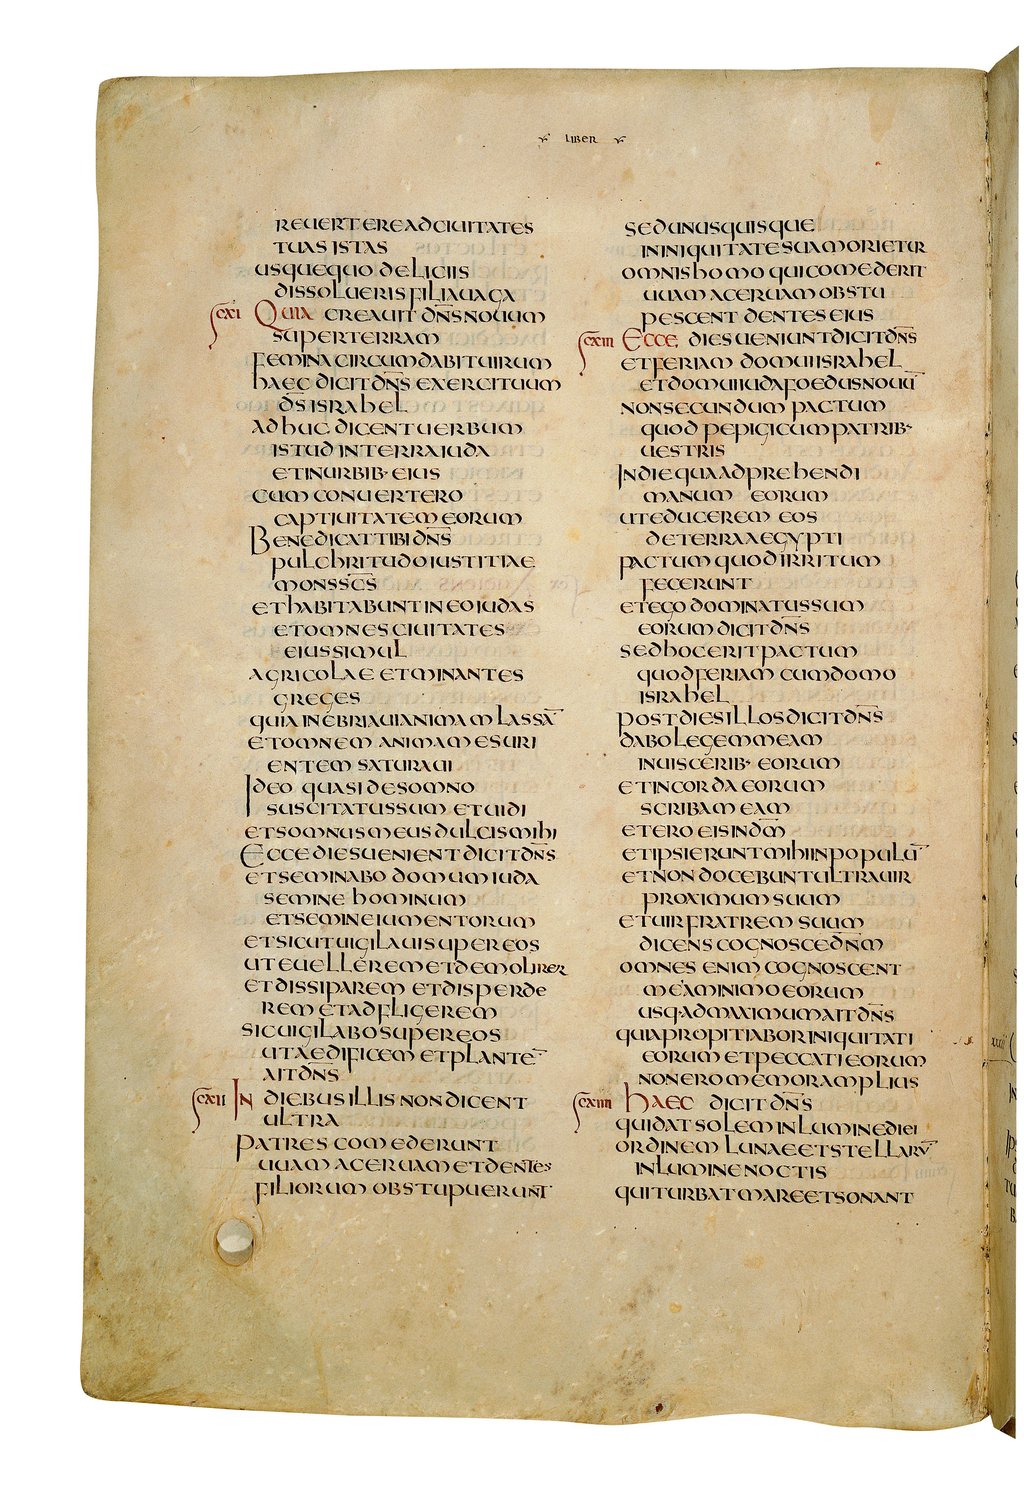 LIBER
REUERTERE AD CIUITATES
TUAS ISTAS
USQUEQUO DELICIIS
DISSOLUERIS FILIA UAGA
CXI QUIA CREAUIT DN̄S NOUUM
SUPER TERRAM
FEMINA CIRCUMDABIT UIRUM
HAEC DICIT DN̄S EXERCITUUM
DS̄ ISRAHEL
ADHUC DICENT UERBUM
ISTUD IN TERRA IUDA
ET IN URBIB· EIUS
CUM CONUERTERO
CAPTIUITATEM EORUM
BENEDICAT TIBI DN̄S
PULCHRITUDO IUSTITIAE
MONS SC̄S
ET HABITABUNT IN EO IUDAS
ET OMNES CIUITATES
EIUS SIMUL
AGRICOLAE ET MINANTES
GREGES
QUIA INEBRIAUI ANIMAM LASSĀ
ET OMNEM ANIMAM ESURI
ENTEM SATURAUI
IDEO QUASI DE SOMNO
SUSCITATUS SUM ET UIDI
ET SOMNUS MEUS DULCIS MIHI
ECCE DIES UENIENT DICIT DN̄S
ET SEMINABO DOMUM IUDA
SEMINE HOMINUM
ET SEMINE IUMENTORUM
ET SICUT UIGILAUI SUPER EOS
UT EUELLEREM ET DEMOLIRER
ET DISSIPAREM ET DISPERDE
REM ET ADFLIGEREM
SIC UIGILABO SUPER EOS
UT AEDIFICEM ET PLANTĒ
AIT DN̄S
CXII IN DIEBUS ILLIS NON DICENT
ULTRA
PATRES COMEDERUNT
UUAM ACERUAM ET DENTES
FILIORUM OBSTUPUERUNT
SED UNUSQUISQUE
IN INIQUITATE SUA MORIETUR
OMNIS HOMO QUI COMEDERIT
UUAM ACERUAM OBSTU
PESCENT DENTES EIUS
CXIII ECCE DIES UENIUNT DICIT DN̄S
ET FERIAM DOMUI ISRAHEL
ET DOMUI IUDA FOEDUS NOUŪ
NON SECUNDUM PACTUM
QUOD PEPIGI CUM PATRIB·
UESTRIS
IN DIE QUA ADPREHENDI
MANUM EORUM
UT EDUCEREM EOS
DE TERRA AEGYPTI
PACTUM QUOD IRRITUM
FECERUNT
ET EGO DOMINATUS SUM
EORUM DICIT DN̄S
SED HOC ERIT PACTUM
QUOD FERIAM CUM DOMO
ISRAHEL
POST DIES ILLOS DICIT DN̄S
DABO LEGEM MEAM
IN UISCERIB· EORUM
ET IN CORDA EORUM
SCRIBAM EAM
ET ERO EIS IN DM̄
ET IPSI ERUNT MIHI IN POPULŪ
ET NON DOCEBUNT ULTRA UIR
PROXIMUM SUUM
ET UIR FRATREM SUUM
DICENS COGNOSCE DN̄M
OMNES ENIM COGNOSCENT
ME A MINIMO EORUM
USQ· AD MAXIMUM AIT DN̄S
QUIA PROPITIABOR INIQUITATI
EORUM ET PECCATI EORUM
NON ERO MEMOR AMPLIUS
CXIIII HAEC DICIT DN̄S
QUI DAT SOLEM IN LUMINE DIEI
ORDINEM LUNAE ET STELLARŪ
IN LUMINE NOCTIS
QUI TURBAT MARE ET SONANT